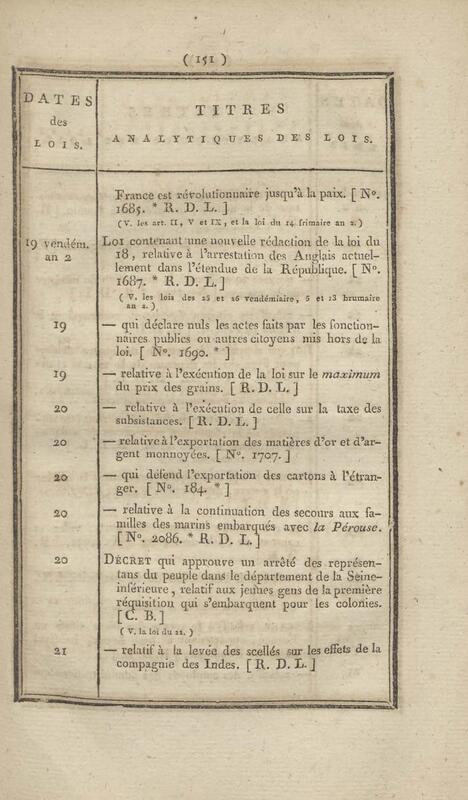 ( 151 )
DATES
des
LOIS.
TITRES
ANALYTIQUES DES LOIS.
France est révolutionnaire jusqu'à la paix. [ Nº.
1685. * R. D. L. ]
(V. les art. II, V et IX, et la loi du 14 frimaire an 2.)
19 vendém.
an 2
LOI contenant une nouvelle rédaction de la loi du
18, relative à l'arrestation des Anglais actuel-
lement dans l'étendue de la République. [ Nº.
1687. * R. D. L. ]
( V. les lois des 25 et 26 vendémiaire, 5 et 13 brumaire
an 2. )
19
— qui déclare nuls les actes faits par les fonction-
naires publics ou autres citoyens mis hors de la
loi. [ Nº. 1690. * ]
19
— relative à l'exécution de la loi sur le maximum
du prix des grains. [ R. D. L. ]
20
— relative à l'exécution de celle sur la taxe des
subsistances. [ R. D. L. ]
20
— relative à l'exportation des matières d'or et d'ar-
gent monnoyées. [ Nº. 1707. ]
20
— qui défend l'exportation des cartons à l'étran-
ger. [ Nº. 184. * ]
20
— relative à la continuation des secours aux fa-
milles des marins embarqués avec la Pérouse.
[ Nº. 2086. * R. D. L. ]
20
DÉCRET qui approuve un arrêté des représen-
tans du peuple dans le département de la Seine-
inférieure, relatif aux jeunes gens de la première
réquisition qui s'embarquent pour les colonies.
[ C. B. ]
( V. la loi du 22. )
21
— relatif à la levée des scellés sur les effets de la
compagnie des Indes. [ R. D. L. ]